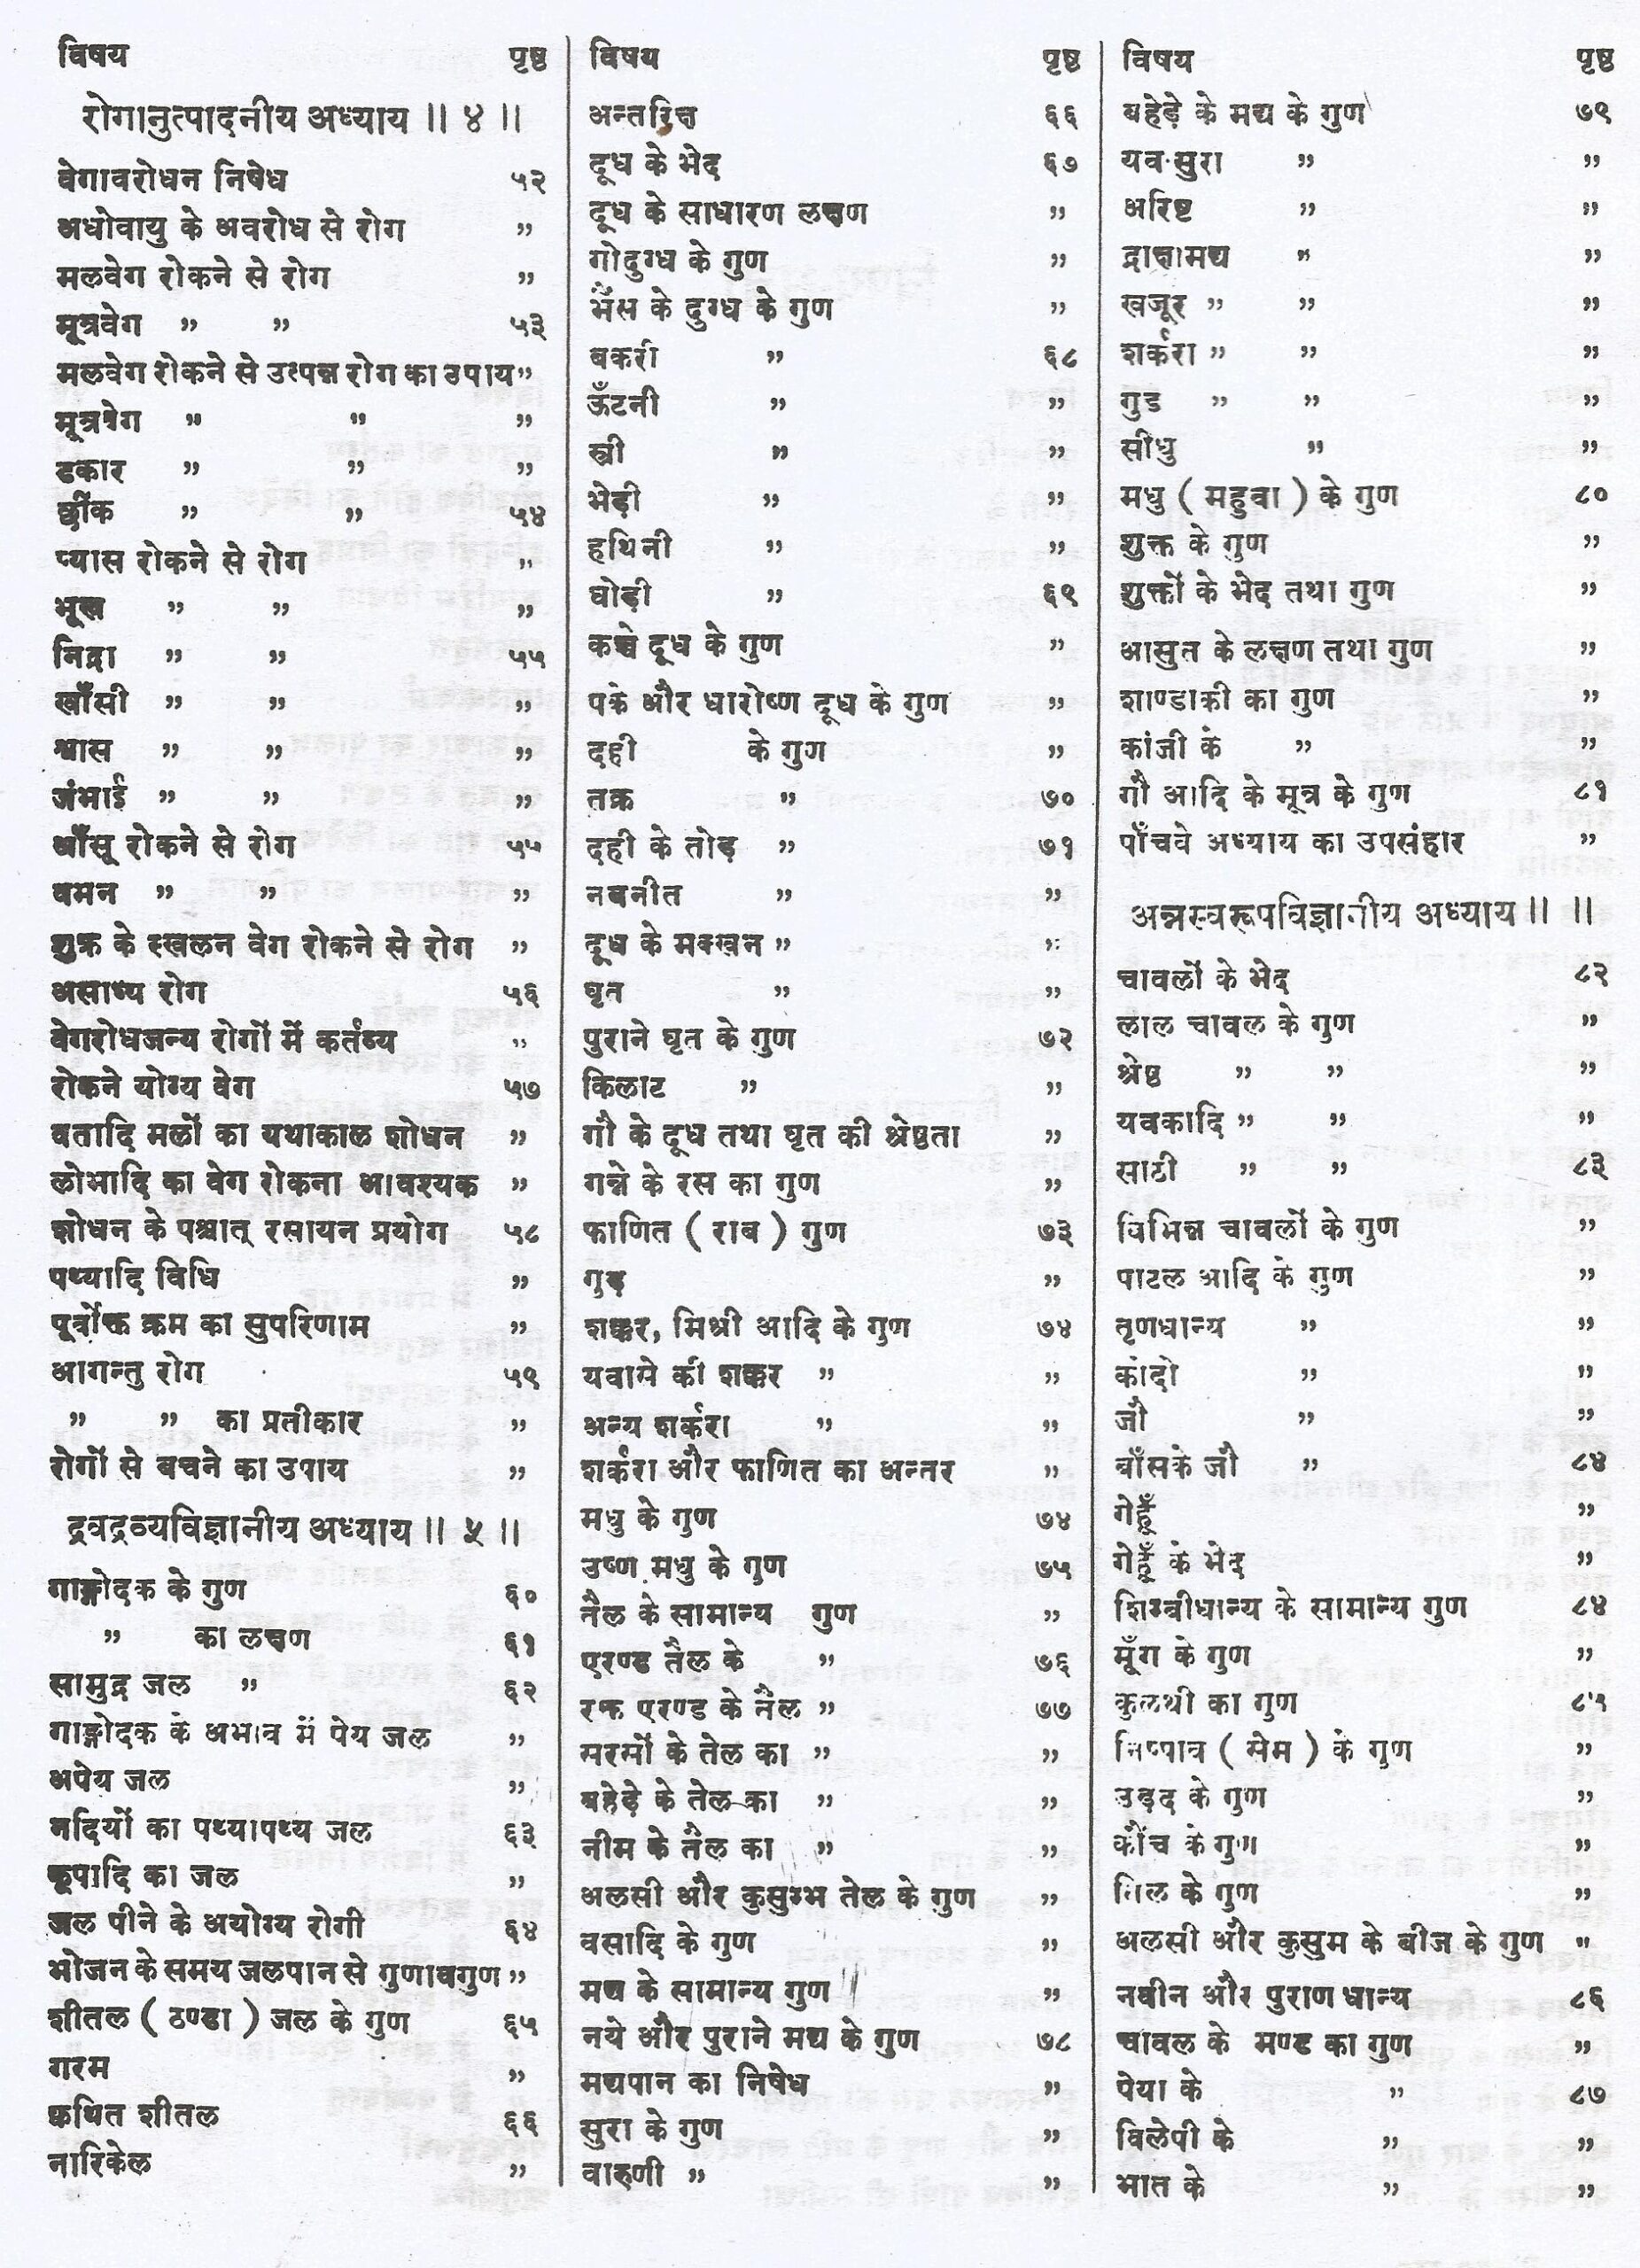 विषय पृष्ठ
रोगानुत्पादनीय अध्याय ॥ ४ ॥
वेगावरोधन निषेध ५२
अधोवायु के अवरोध से रोग ”
मलवेग रोकने से रोग ”
मूत्रवेग ” ” ५३
मलवेग रोकने से उत्पन्न रोग का उपाय ”
मूत्रवेग ” ” ”
डकार ” ” ”
छींक ” ” ५४
प्यास रोकने से रोग ”
भूख ” ” ”
निद्रा ” ” ५५
खाँसी ” ” ”
श्वास ” ” ”
जंभाई ” ” ”
आँसू रोकने से रोग ५५
वमन ” ” ”
शुक्र के स्खलन वेग रोकने से रोग ”
असाध्य रोग ५६
वेगरोधजन्य रोगों में कर्तव्य ”
रोकने योग्य वेग ५७
वतादि मलों का यथाकाल शोधन ”
लोभादि का वेग रोकना आवश्यक ”
शोधन के पश्चात् रसायन प्रयोग ५८
पथ्यादि विधि ”
पूर्वोक्त क्रम का सुपरिणाम ”
आगन्तु रोग ५९
” ” का प्रतीकार ”
रोगों से बचने का उपाय ”
द्रवद्रव्यविज्ञानीय अध्याय ॥ ५ ॥
गाङ्गोदक के गुण ६०
” का लक्षण ६१
सामुद्र जल ” ६२
गाङ्गोदक के अभाव में पेय जल ”
अपेय जल ”
नदियों का पथ्यापथ्य जल ६३
कूपादि का जल ”
जल पीने के अयोग्य रोगी ६४
भोजन के समय जलपान से गुणावगुण ”
शीतल ( ठण्डा ) जल के गुण ६५
गरम ”
क्वथित शीतल ६६
नारिकेल ”
विषय पृष्ठ
अन्तरिक्ष ६६
दूध के भेद ६७
दूध के साधारण लक्षण ”
गोदुग्ध के गुण ”
भैंस के दुग्ध के गुण ”
बकरी ” ६८
ऊँटनी ” ”
स्त्री ” ”
भेड़ी ” ”
हथिनी ” ”
घोड़ी ” ६९
कच्चे दूध के गुण ”
पके और धारोष्ण दूध के गुण ”
दही के गुण ”
तक्र ” ७०
दही के तोड़ ” ७१
नवनीत ” ”
दूध के मक्खन ” ”
घृत ” ”
पुराने घृत के गुण ७२
किलाट ” ”
गौ के दूध तथा घृत की श्रेष्ठता ”
गन्ने के रस का गुण ”
फाणित ( राब ) गुण ७३
गुड़ ”
शक्कर, मिश्री आदि के गुण ७४
यवासे की शक्कर ” ”
अन्य शर्करा ” ”
शर्करा और फाणित का अन्तर ”
मधु के गुण ७४
उष्ण मधु के गुण ७५
तैल के सामान्य गुण ”
एरण्ड तैल के ” ७६
रक्त एरण्ड के तैल ” ७७
सरसों के तेल का ” ”
बहेड़े के तेल का ” ”
नीम के तैल का ” ”
अलसी और कुसुम्भ तेल के गुण ”
वसादि के गुण ”
मद्य के सामान्य गुण ”
नये और पुराने मद्य के गुण ७८
मद्यपान का निषेध ”
सुरा के गुण ”
वारुणी ” ”
विषय पृष्ठ
बहेड़े के मद्य के गुण ७९
यव सुरा ” ”
अरिष्ट ” ”
द्राक्षामद्य ” ”
खजूर ” ” ”
शर्करा ” ” ”
गुड ” ” ”
सीधु ” ”
मधु ( महुवा ) के गुण ८०
शुक्त के गुण ”
शुक्तों के भेद तथा गुण ”
आसुत के लक्षण तथा गुण ”
शाण्डाकी का गुण ”
कांजी के ” ”
गौ आदि के मूत्र के गुण ८१
पाँचवे अध्याय का उपसंहार ”
अन्नस्वरूपविज्ञानीय अध्याय ॥ ॥
चावलों के भेद ८२
लाल चावल के गुण ”
श्रेष्ठ ” ” ”
यवकादि ” ” ”
साठी ” ” ८३
विभिन्न चावलों के गुण ”
पाटल आदि के गुण ”
तृणधान्य ” ”
कोदो ” ”
जौ ” ”
बाँसके जौ ” ८४
गेहूँ ”
गेहूँ के भेद ”
शिम्बीधान्य के सामान्य गुण ८४
मूँग के गुण ”
कुलथी का गुण ८५
निष्पाव ( सेम ) के गुण ”
उड़द के गुण ”
कौंच के गुण ”
तिल के गुण ”
अलसी और कुसुम के बीज के गुण ”
नवीन और पुराण धान्य ८६
चावल के मण्ड का गुण ”
पेया के ” ८७
विलेपी के ” ”
भात के ” ”